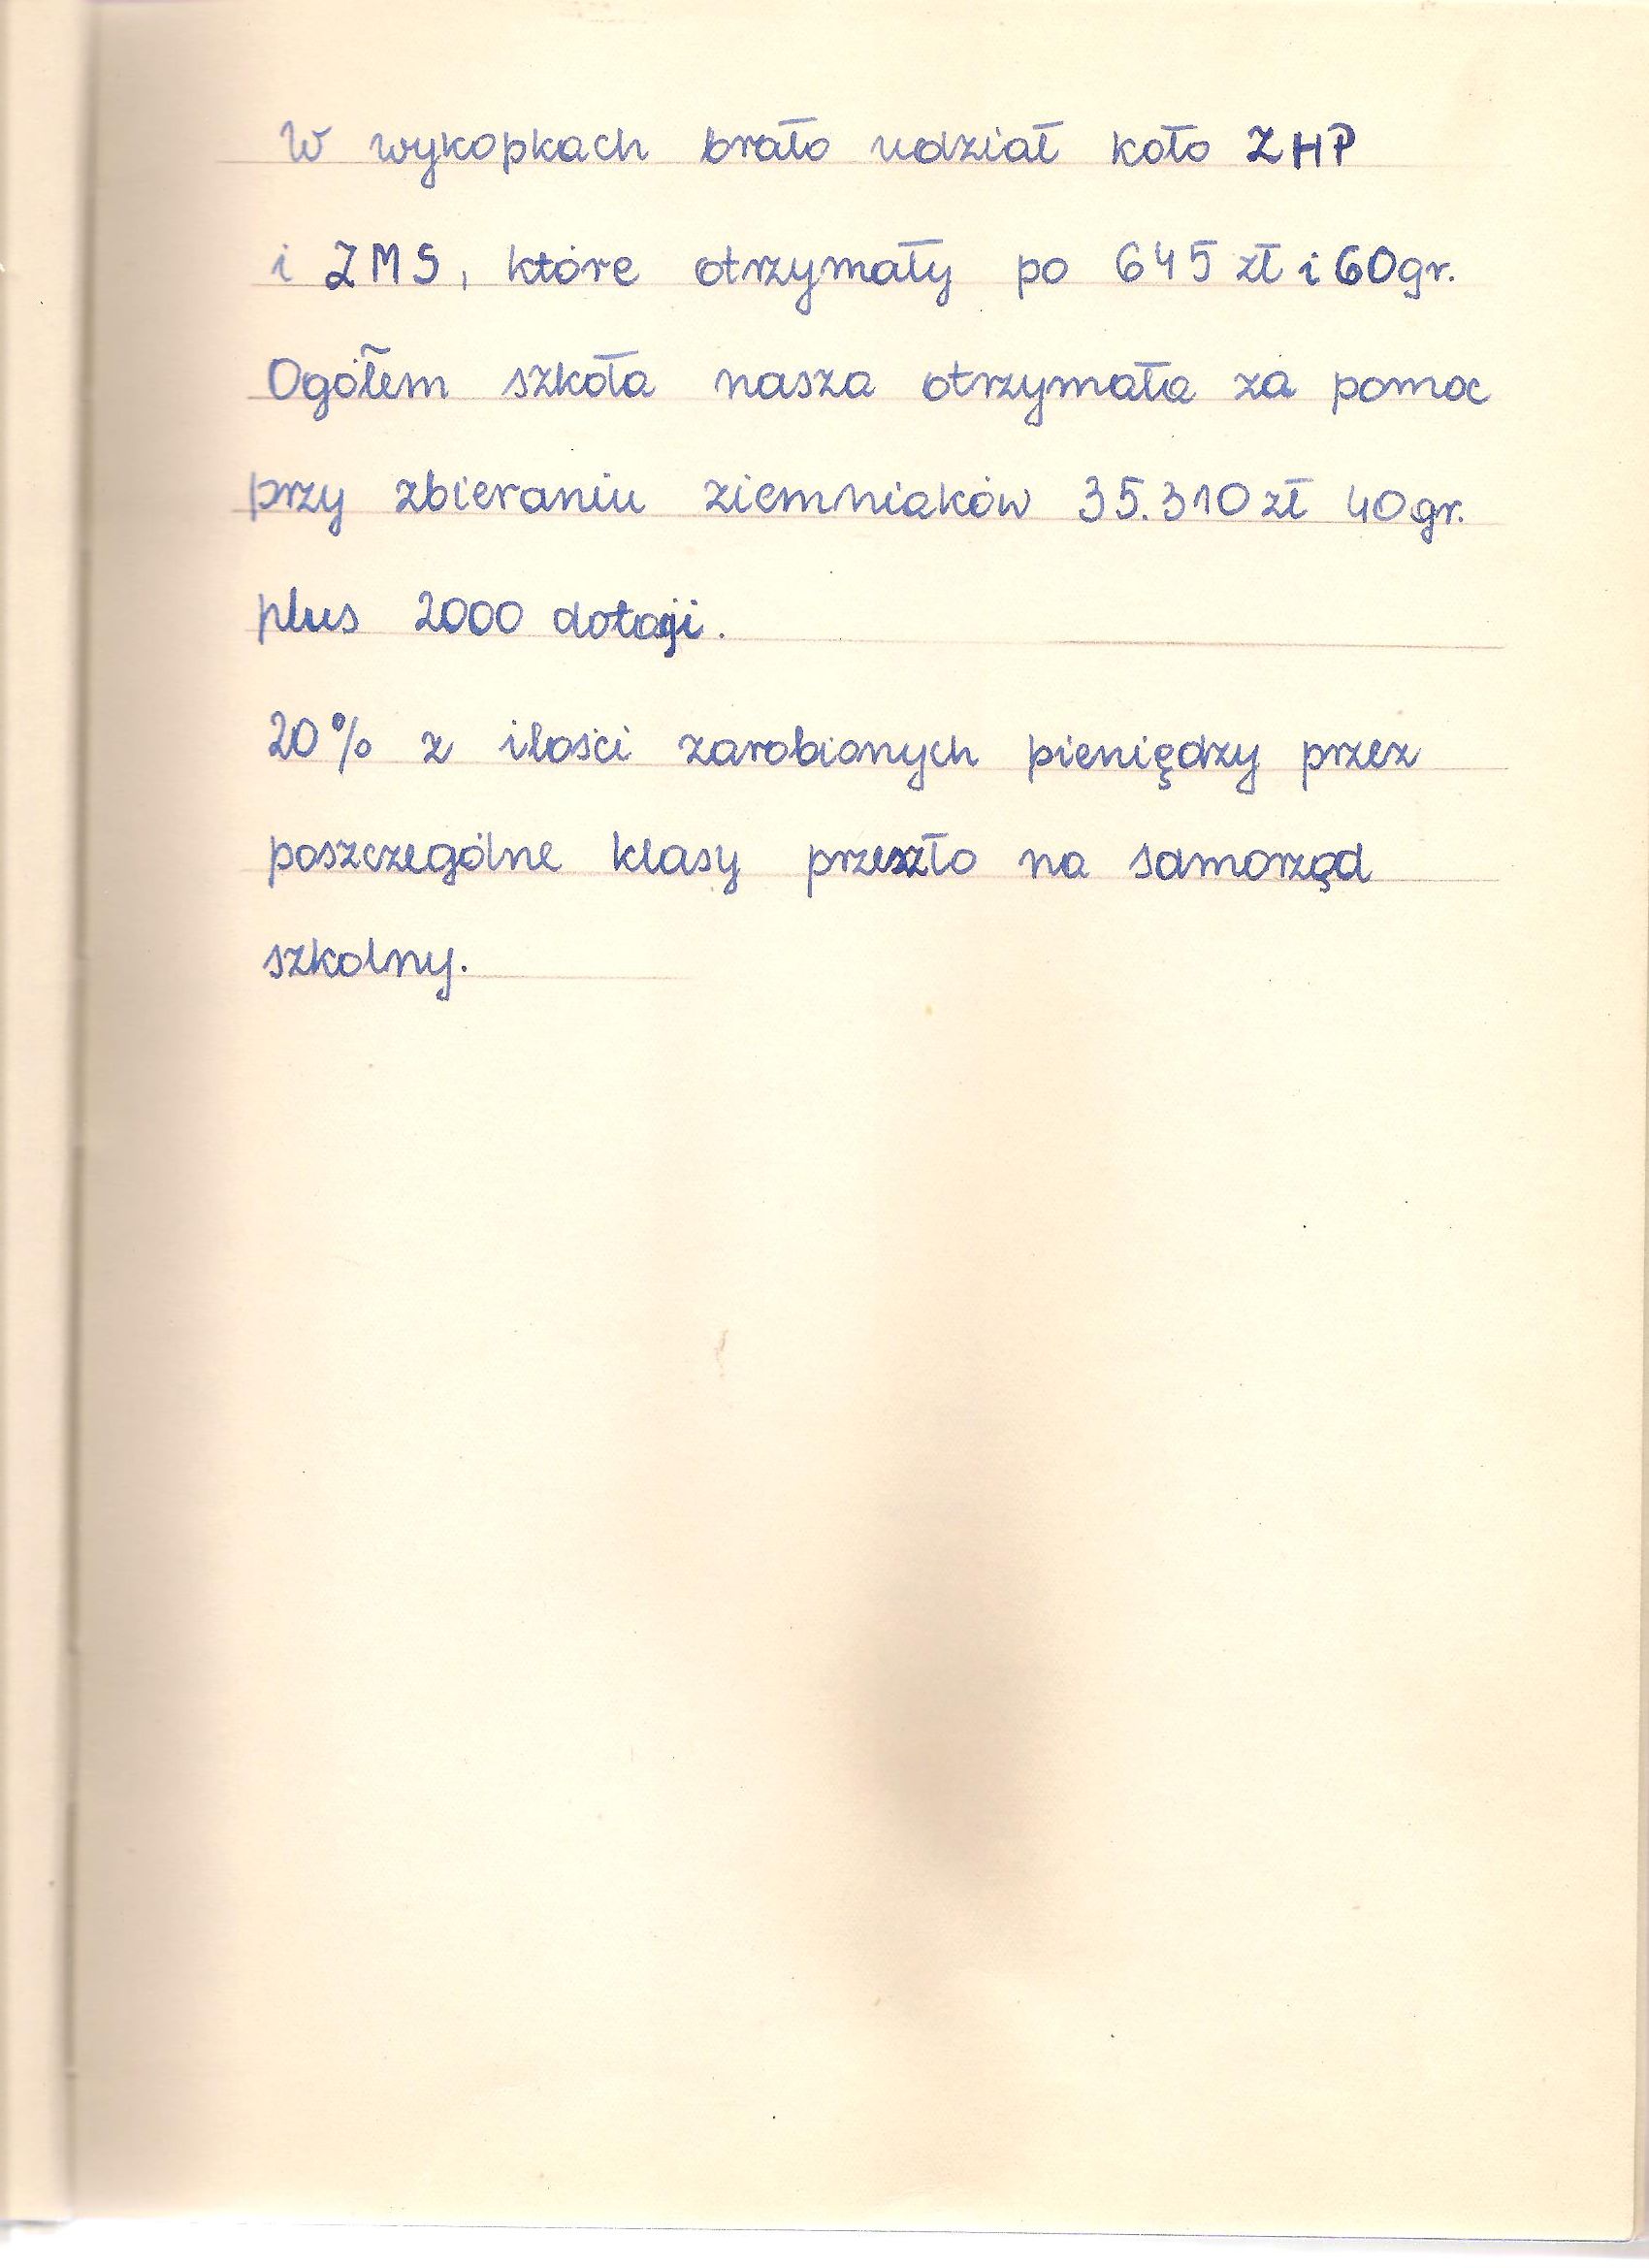 W wykopkach brało udział koło ZHP
i ZMS, które otrzymały po 645 zł i 60 gr.
Ogółem szkoła nasza otrzymała za pomoc
przy zbieraniu ziemniaków 35.310 zł 40 gr.
plus 2000 dotacji.
20% z ilości zarobionych pieniędzy przez
poszczególne klasy przeszło na samorząd
szkolny.